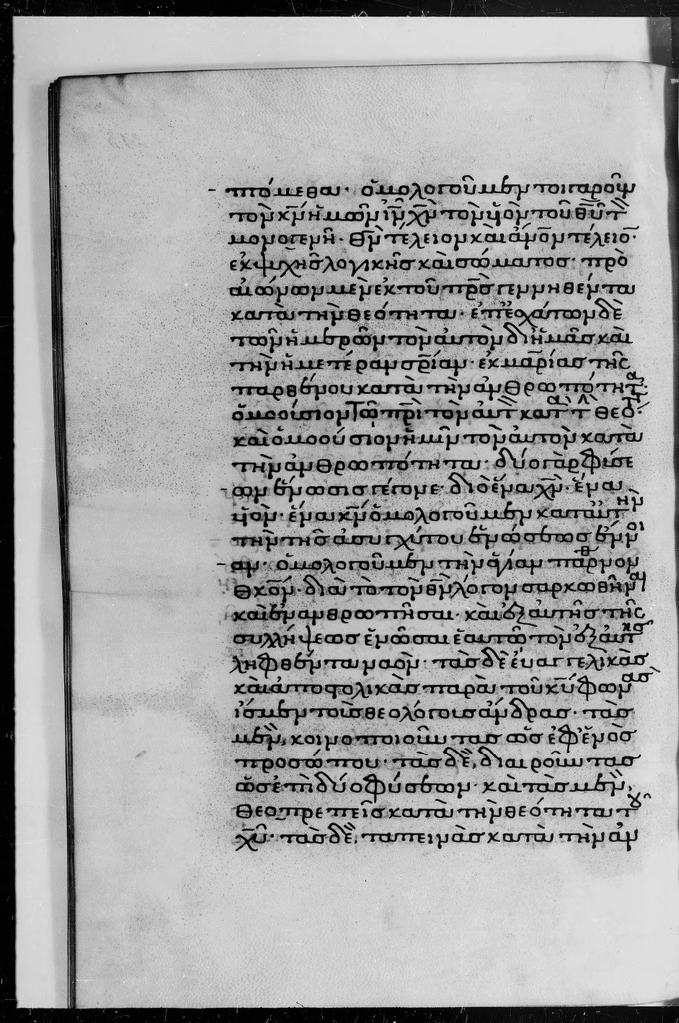 πτόμεθα· ὁμολογοῦμεν τοιγαροῦν
τὸν κ̅ν̅ ἡμῶν ι̅ν̅ χ̅ν̅ τὸν υ̅ν̅ τοῦ θ̅υ̅ τὸν
μονογενῆ· θ̅ν̅ τέλειον καὶ ἄν̅ο̅ν̅ τέλειον·
ἐκ ψυχῆς λογικῆς καὶ σώματος· πρὸ
αἰώνων μὲν ἐκ τοῦ π̅ρ̅ς̅ γεννηθέντα
κατὰ τὴν θεότητα· ἐπ' ἐσχάτων δὲ
τῶν ἡμερῶν τὸν αὐτὸν δι' ἡμᾶς καὶ
τὴν ἡμετέραν σ̅ρ̅ίαν· ἐκ μαρίας τῆς
παρθένου κατὰ τὴν ἀνθρωπότητα·
ὁμοούσιον τῷ π̅ρ̅ὶ τὸν αὐτὸν κατὰ τὴν θεότητα·
καὶ ὁμοούσιον ἡμῖν τὸν αὐτὸν κατὰ
τὴν ἀνθρωπότητα· δύο γὰρ φύσε
ων ἕνωσις γέγονε· διὸ ἕνα χ̅ν̅· ἕνα
υ̅ν̅· ἕνα κ̅ν̅ ὁμολογοῦμεν κατὰ ταύτην
τὴν τῆς ἀσυγχύτου ἑνώσεως ἔννοι
αν· ὁμολογοῦμεν τὴν ἁγίαν παρθένον
θ̅κ̅ο̅ν̅· διὰ τὸ τὸν θ̅ν̅ λόγον σαρκωθῆναι
καὶ ἐνανθρωπῆσαι· καὶ ἐξ αὐτῆς τῆς
συλλήψεως ἑνῶσαι ἑαυτῷ τὸν ἐξ αὐτῆς
ληφθέντα ναόν· τὰς δὲ εὐαγγελικὰς
καὶ ἀποστολικὰς παρὰ τοῦ κ̅υ̅ φωνὰς
ἴσμεν τοὺς θεολόγους ἄνδρας· τὰς
μὲν, κοινοποιοῦντας ὡς ἐφ' ἑνὸς
προσώπου· τὰς δὲ, διαιροῦντας
ὡς ἐπὶ δύο φύσεων· καὶ τὰς μὲν,
θεοπρεπεῖς κατὰ τὴν θεότητα τοῦ
χ̅υ̅· τὰς δὲ, ταπεινὰς κατὰ τὴν ἀν